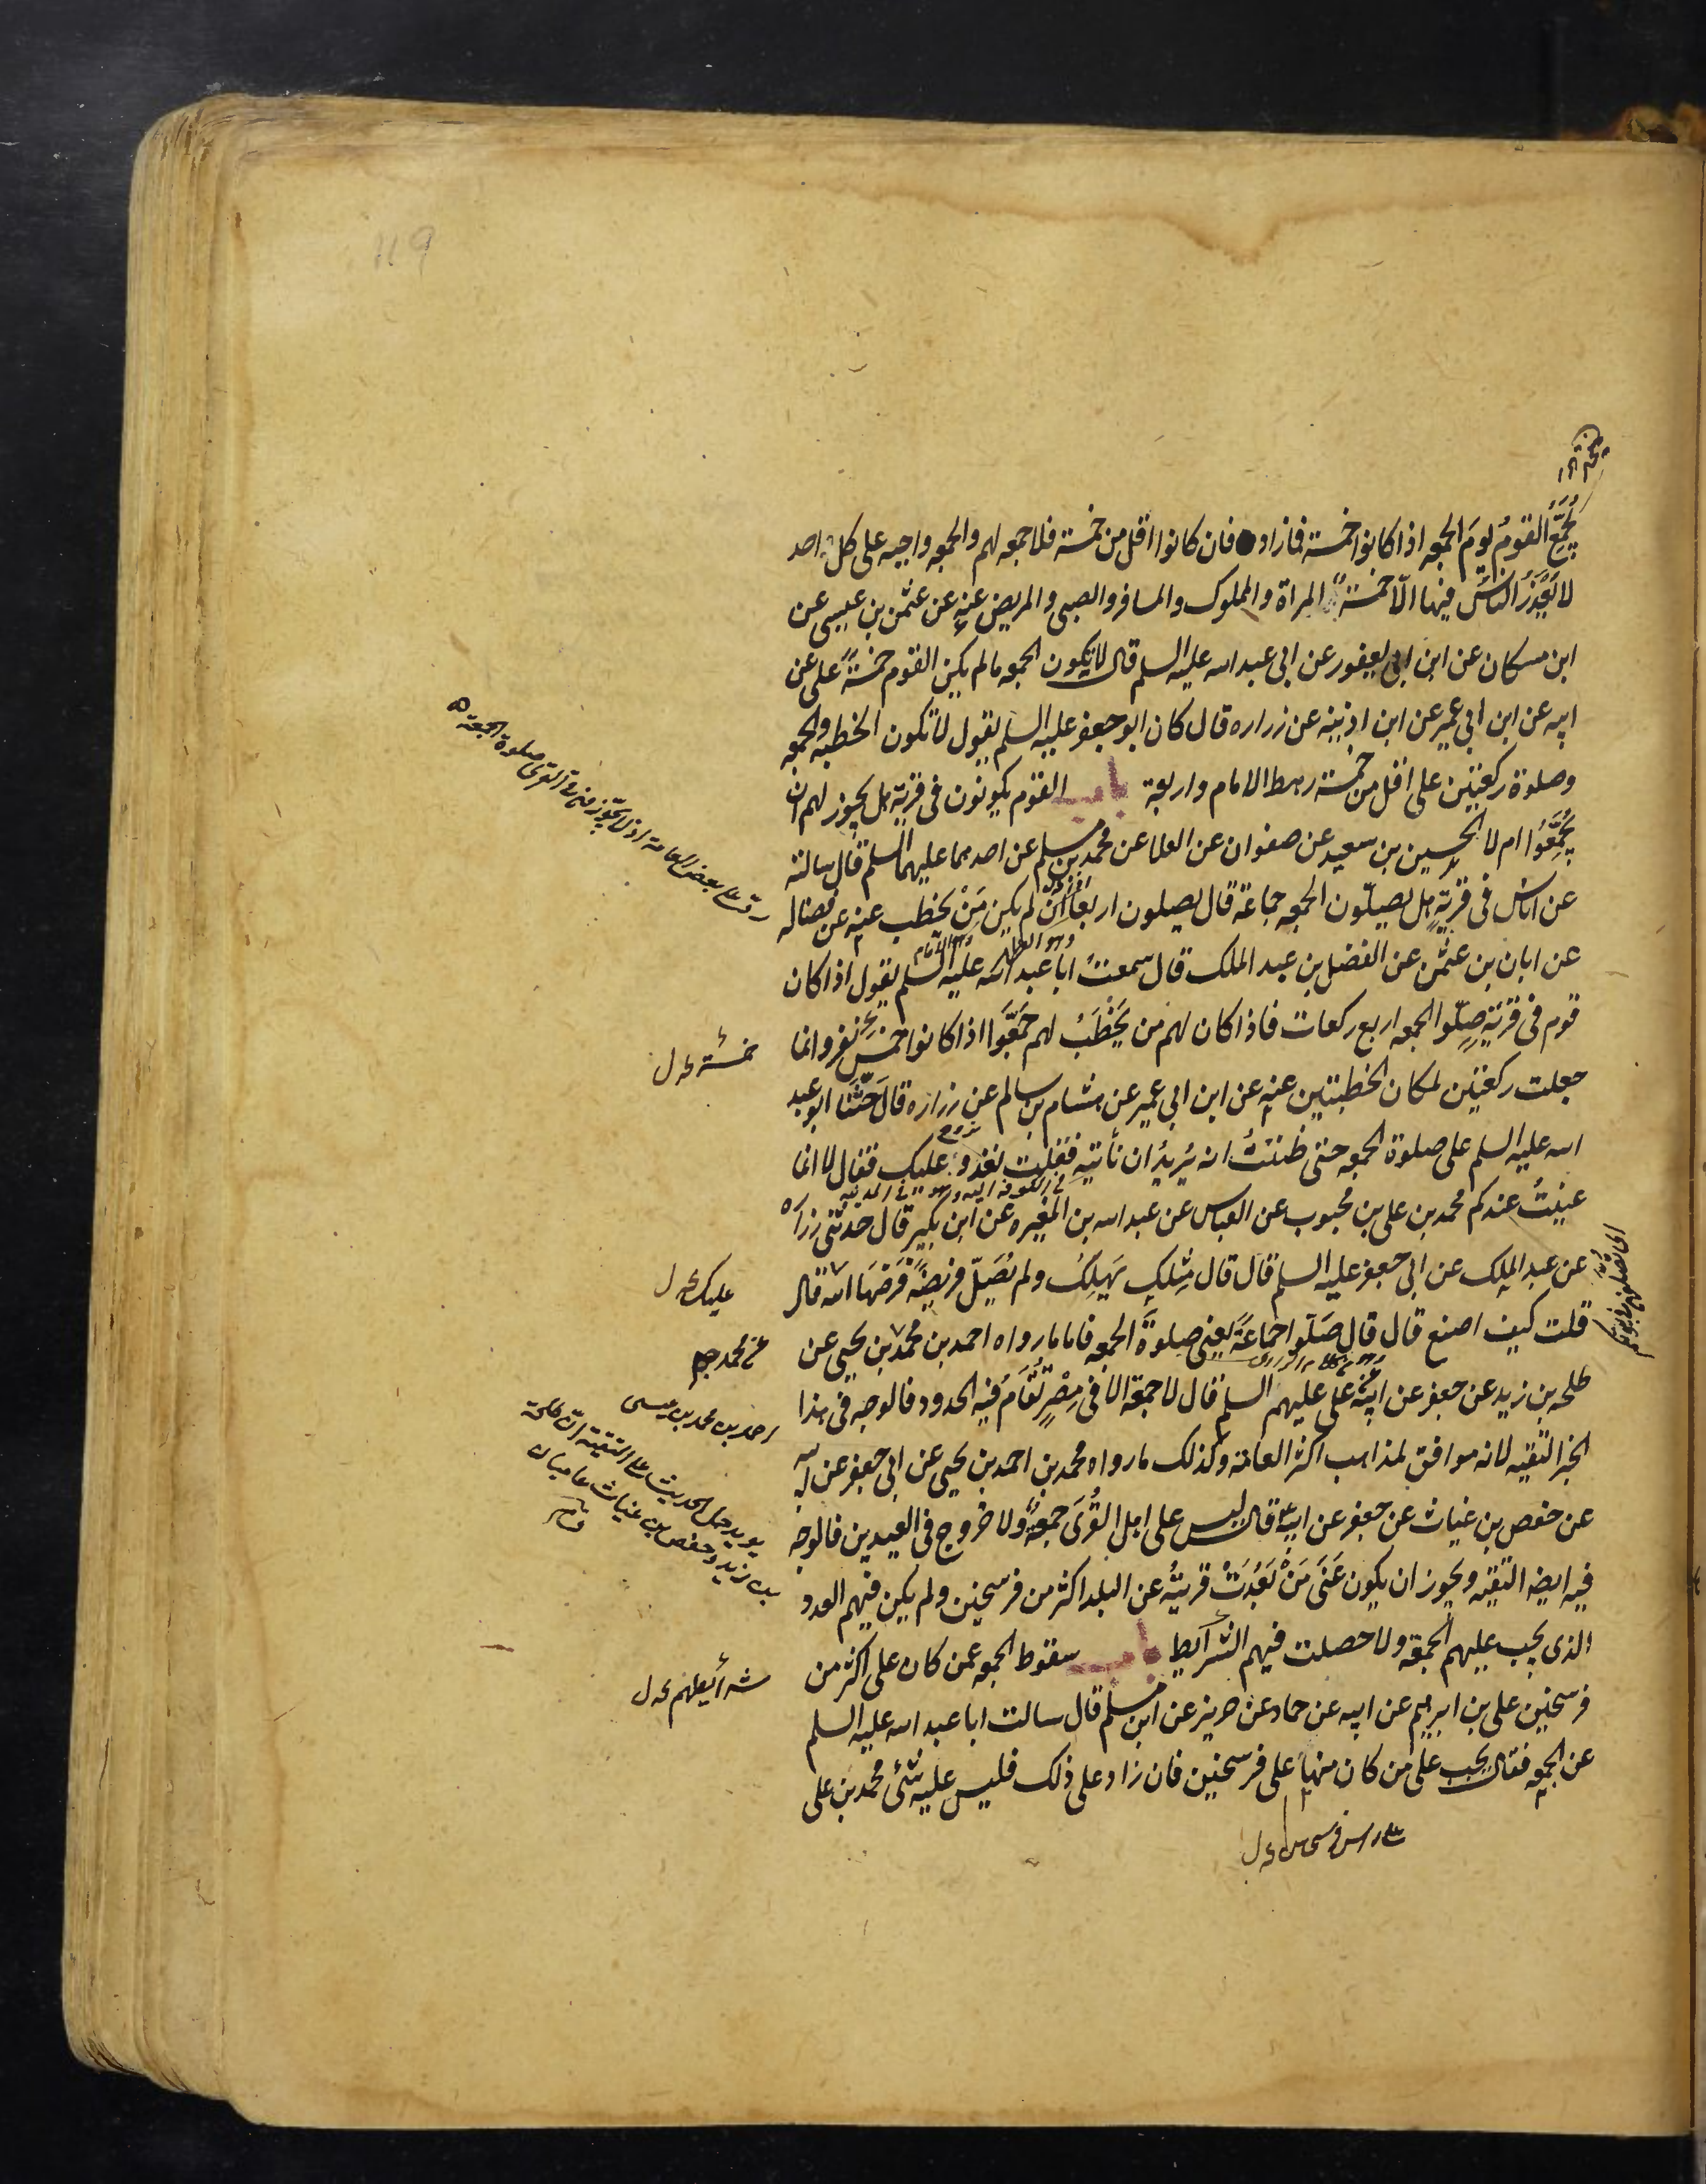 يُجَمِّعُ القومُ يومَ الجمعه اذا كانوا خمسة فما زاد فان كانوا اقل من خمسة فلا جمعه لهم والجمعه واجبه على كل احد
لا يُعْذَرُ الناسُ فيها الّا خمسةٌ المراة والمملوك والمسافر والصبى والمريض عنه عن عثمن بن عيسى عن
ابن مسكان عن ابن ابى يعفور عن ابى عبد الله عليه السلم قال لا يكون الجمعه ما لم يكن القوم خمسةً على عن
ابيه عن ابن ابى عمير عن ابن اذينه عن زراره قال كان ابو جعفر عليه السلم يقول لا تكون الخطبه والجمعه
وصلوة ركعتين على اقل من خمسة رهط الامام واربعة باب القوم يكونون فى قرية هل يجوز لهم ان
يُجَمِّعُوا ام لا الحسين بن سعيد عن صفوان عن العلا عن محمد بن مسلم عن احدهما عليهما السلم قال سالته
عن اناس فى قريةٍ هل يصلّون الجمعه جماعة قال يصلون اربعًا اذا لم يكن مَنْ يخطب عنه عن فضاله
عن ابان بن عثمن عن الفضل بن عبد الملك قال سمعتُ ابا عبد الله عليه السلم يقول اذا كان
قوم فى قرية صلّوا الجمعه اربع ركعات فاذا كان لهم من يَخْطُبُ لهم جَمَّعُوا اذا كانوا خمس نفر وانما
خمسة عه ل
جعلت ركعتين لمكان الخطبتين عنه عن ابن ابى عمير عن هشام بن سالم عن زراره قال حَثَّنَا ابو عبد
الله عليه السلم على صلوة الجمعه حتى ظننتُ انه يُريدُ ان نأتيه فقلت نغدو عليك فقال لا انما
عنيتُ عندكم محمد بن على بن محبوب عن العباس عن عبد الله بن المغيره عن ابن بكير قال حدثنى زراره
عن عبد الملك عن ابى جعفر عليه السلم قال قال مِثلك يَهلِكُ ولم يُصَلّ فريضةً فَرَضَهَا الله قال
عليك عه ل
قلت كيف اصنع قال قال صَلّوا جماعةً يعنى صلوةَ الجمعه فاما ما رواه احمد بن محمد بن يحيى عن
طلحه بن زيد عن جعفر عن ابيه عن على عليهم السلم قال لا جمعة الا فى مِصْرٍ تُقَامُ فيه الحدود فالوجه فى هذا
احمد بن محمد بن عيسى
الخبر التقيه لانه موافق لمذاهب اكثر العامة وكذلك ما رواه محمد بن احمد بن يحيى عن ابى جعفر عن ابيه
عن حفص بن غياث عن جعفر عن ابيه قال ليس على اهل القُرَى جمعةٌ ولا خروج فى العيدين فالوجه
يويد حمل الحديث على التقية ان طلحة
بن زيد وحفص بن غياث عاميان
فيه ايضا التقيه ويجوز ان يكون عَنَى مَنْ بَعُدَتْ قريتُه عن البلد اكثر من فرسخين ولم يكن فيهم العدد
الذى يجب عليهم الجمعة ولا حصلت فيهم الشرايط باب سقوط الجمعه عمن كان على اكثر من
فرسخين على بن ابرهيم عن ابيه عن حماد عن حريز عن ابن مسلم قال سالت ابا عبد الله عليه السلم
عن الجمعه فقال يجب على من كان منها على فرسخين فان زاد على ذلك فليس عليه شئ محمد بن على